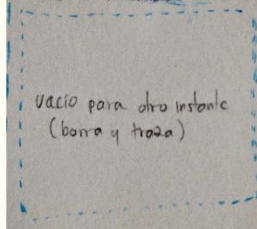 vacio para otro instante
(borra y traza)